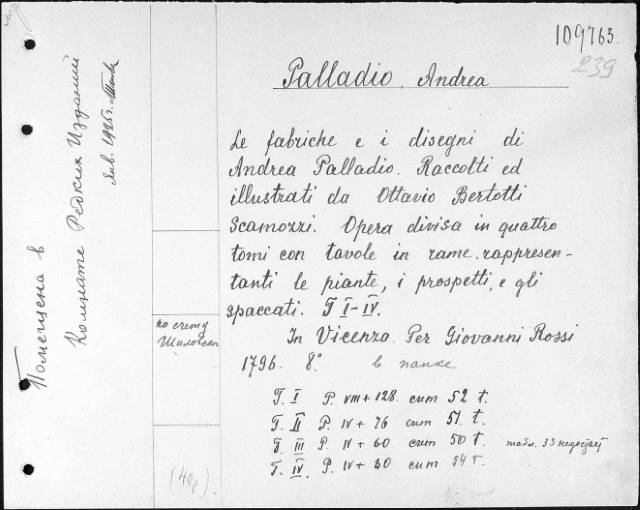 109763.
239
Palladio. Andrea
Le fabriche e i disegni di
Andrea Palladio. Raccolti ed
illustrati da Ottavio Bertotti
Scamozzi. Opera divisa in quattro
tomi con tavole in rame. rappresen-
tanti le piante, i prospetti, e gli
spaccati. T I-IV.
In Vicenza. Per Giovanni Rossi
1796. 8° в папке
T. I P. VIII + 128. cum 52 t.
T. II P. IV + 76 cum 51. t.
T. III P. IV + 60 cum 50 t. табл. 33 недостает
T. IV. P. IV + 80 cum 54 t.
Помещена в
Комнате Редких Изданий
Янв. 1925г.
по счету
(40р).